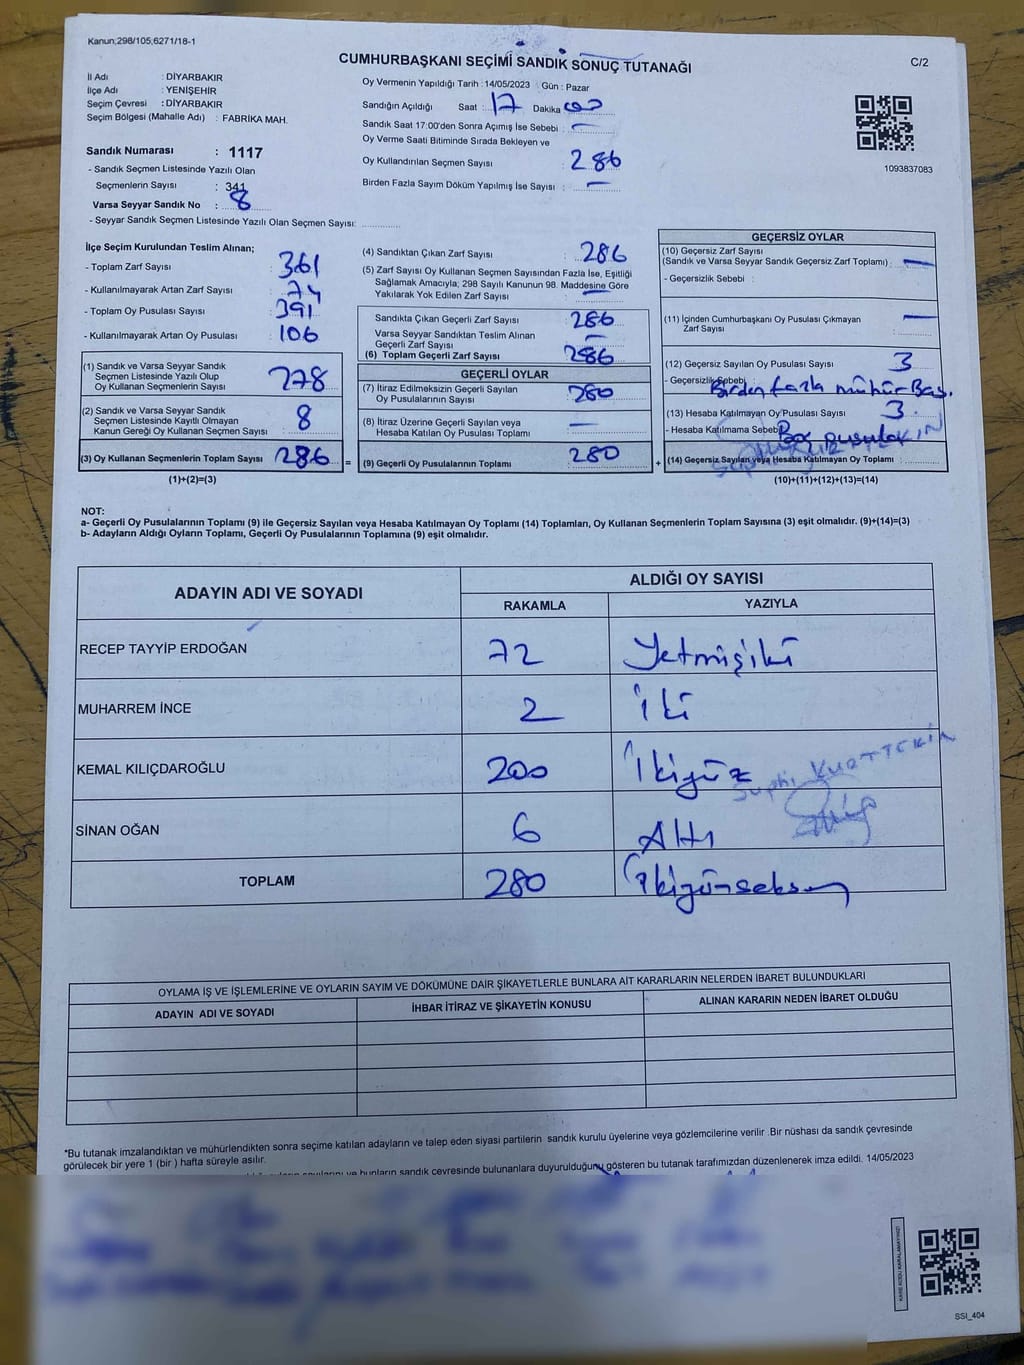 Kanun;298/105,6271/18-1
CUMHURBAŞKANI SEÇİMİ SANDIK SONUÇ TUTANAĞI
C/2
İl Adı : DİYARBAKIR
İlçe Adı : YENİŞEHİR
Seçim Çevresi : DİYARBAKIR
Seçim Bölgesi (Mahalle Adı) : FABRİKA MAH.
Sandık Numarası : 1117
- Sandık Seçmen Listesinde Yazılı Olan
Seçmenlerin Sayısı : 341
Varsa Seyyar Sandık No : 8
- Seyyar Sandık Seçmen Listesinde Yazılı Olan Seçmen Sayısı:
Oy Vermenin Yapıldığı Tarih : 14/05/2023 Gün : Pazar
Sandığın Açıldığı Saat : 17 Dakika
Sandık Saat 17:00'den Sonra Açımış İse Sebebi : —
Oy Verme Saati Bitiminde Sırada Bekleyen ve
Oy Kullandırılan Seçmen Sayısı : 286
Birden Fazla Sayım Döküm Yapılmış İse Sayısı : —
1093837083
İlçe Seçim Kurulundan Teslim Alınan;
- Toplam Zarf Sayısı : 361
- Kullanılmayarak Artan Zarf Sayısı : 74
- Toplam Oy Pusulası Sayısı : 391
- Kullanılmayarak Artan Oy Pusulası : 106
(1) Sandık ve Varsa Seyyar Sandık
Seçmen Listesinde Yazılı Olup
Oy Kullanan Seçmenlerin Sayısı : 278
(2) Sandık ve Varsa Seyyar Sandık
Seçmen Listesinde Kayıtlı Olmayan
Kanun Gereği Oy Kullanan Seçmen Sayısı : 8
(3) Oy Kullanan Seçmenlerin Toplam Sayısı : 286 =
(1)+(2)=(3)
(4) Sandıktan Çıkan Zarf Sayısı : 286
(5) Zarf Sayısı Oy Kullanan Seçmen Sayısından Fazla İse, Eşitliği
Sağlamak Amacıyla; 298 Sayılı Kanunun 98. Maddesine Göre
Yakılarak Yok Edilen Zarf Sayısı : —
Sandıkta Çıkan Geçerli Zarf Sayısı : 286
Varsa Seyyar Sandıktan Teslim Alınan
Geçerli Zarf Sayısı : —
(6) Toplam Geçerli Zarf Sayısı : 286
GEÇERLİ OYLAR
(7) İtiraz Edilmeksizin Geçerli Sayılan
Oy Pusulalarının Sayısı : 280
(8) İtiraz Üzerine Geçerli Sayılan veya
Hesaba Katılan Oy Pusulası Toplamı : —
(9) Geçerli Oy Pusulalarının Toplamı : 280 +
GEÇERSİZ OYLAR
(10) Geçersiz Zarf Sayısı
(Sandık ve Varsa Seyyar Sandık Geçersiz Zarf Toplamı) : —
- Geçersizlik Sebebi :
(11) İçinden Cumhurbaşkanı Oy Pusulası Çıkmayan
Zarf Sayısı : —
(12) Geçersiz Sayılan Oy Pusulası Sayısı : 3
- Geçersizlik Sebebi : Birden fazla mühür Bas.
(13) Hesaba Katılmayan Oy Pusulası Sayısı : 3
- Hesaba Katılmama Sebebi : Boş pusula
(14) Geçersiz Sayılan veya Hesaba Katılmayan Oy Toplamı :
(10)+(11)+(12)+(13)=(14)
NOT:
a- Geçerli Oy Pusulalarının Toplamı (9) ile Geçersiz Sayılan veya Hesaba Katılmayan Oy Toplamı (14) Toplamları, Oy Kullanan Seçmenlerin Toplam Sayısına (3) eşit olmalıdır. (9)+(14)=(3)
b- Adayların Aldığı Oyların Toplamı, Geçerli Oy Pusulalarının Toplamına (9) eşit olmalıdır.
ADAYIN ADI VE SOYADI
ALDIĞI OY SAYISI
RAKAMLA YAZIYLA
RECEP TAYYİP ERDOĞAN 72 Yetmişiki
MUHARREM İNCE 2 İki
KEMAL KILIÇDAROĞLU 200 İkiyüz
Suphi KURTTEKİN
SİNAN OĞAN 6 Altı
TOPLAM 280 İkiyüzseksen
OYLAMA İŞ VE İŞLEMLERİNE VE OYLARIN SAYIM VE DÖKÜMÜNE DAİR ŞİKAYETLERLE BUNLARA AİT KARARLARIN NELERDEN İBARET BULUNDUKLARI
ADAYIN ADI VE SOYADI İHBAR İTİRAZ VE ŞİKAYETİN KONUSU ALINAN KARARIN NEDEN İBARET OLDUĞU
*Bu tutanak imzalandıktan ve mühürlendikten sonra seçime katılan adayların ve talep eden siyasi partilerin sandık kurulu üyelerine veya gözlemcilerine verilir .Bir nüshası da sandık çevresinde
görülecek bir yere 1 (bir ) hafta süreyle asılır.
ve bunların sandık çevresinde bulunanlara duyurulduğunu gösteren bu tutanak tarafımızdan düzenlenerek imza edildi. 14/05/2023
KARE KODU KARALAMAYINIZ!
SSI_404